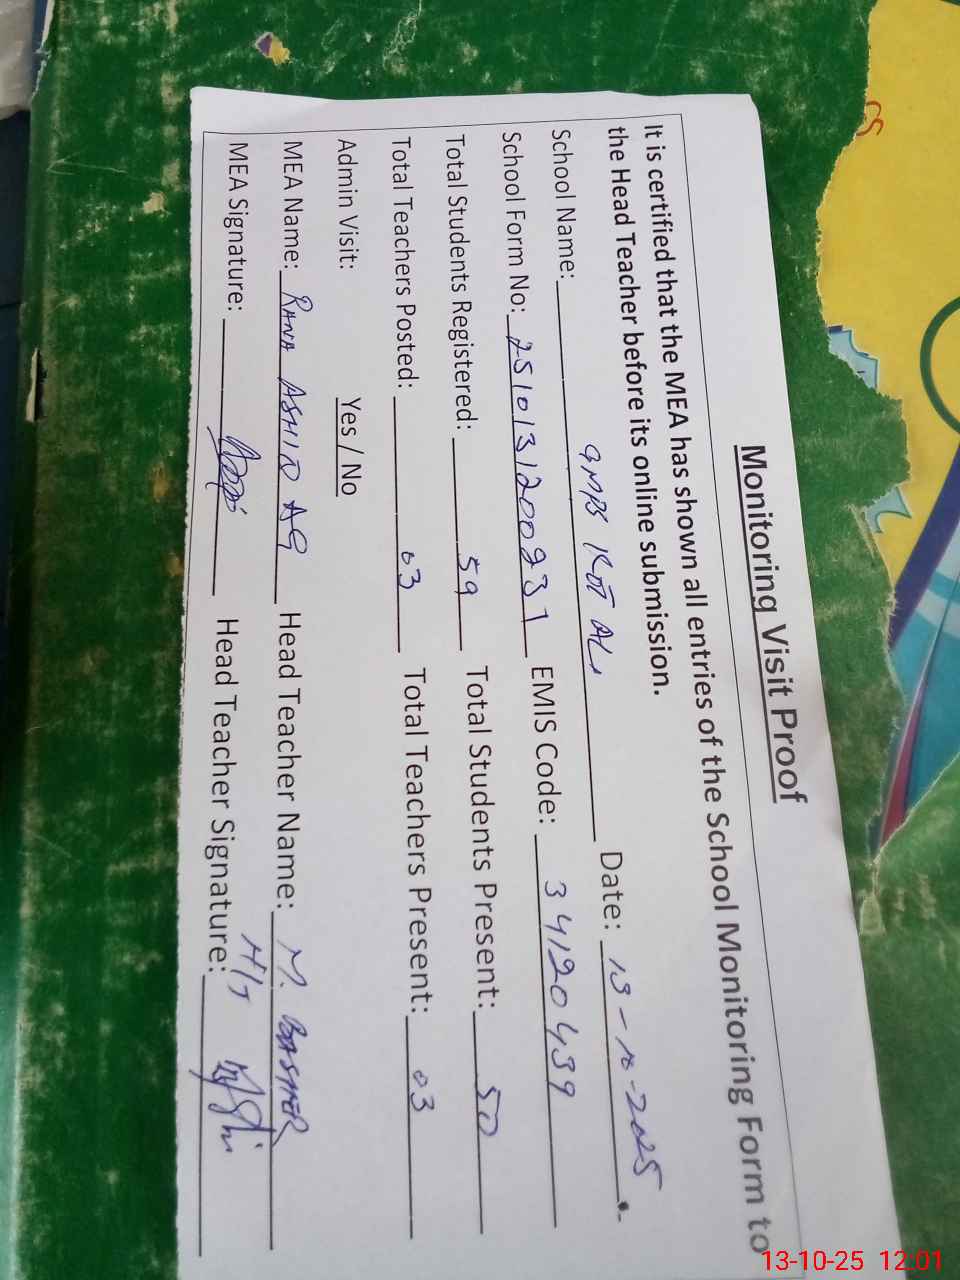 Monitoring Visit Proof
It is certified that the MEA has shown all entries of the School Monitoring Form to
the Head Teacher before its online submission.
School Name: GMPS KOT ALI Date: 13-10-2025
School Form No: 251013120093 EMIS Code: 34120439
Total Students Registered: 59 Total Students Present: 50
Total Teachers Posted: 03 Total Teachers Present: 03
Admin Visit: Yes / No
MEA Name: RANA Head Teacher Name: M. BASHIR
MEA Signature: Head Teacher Signature: H/T
CS
13-10-25 12:01